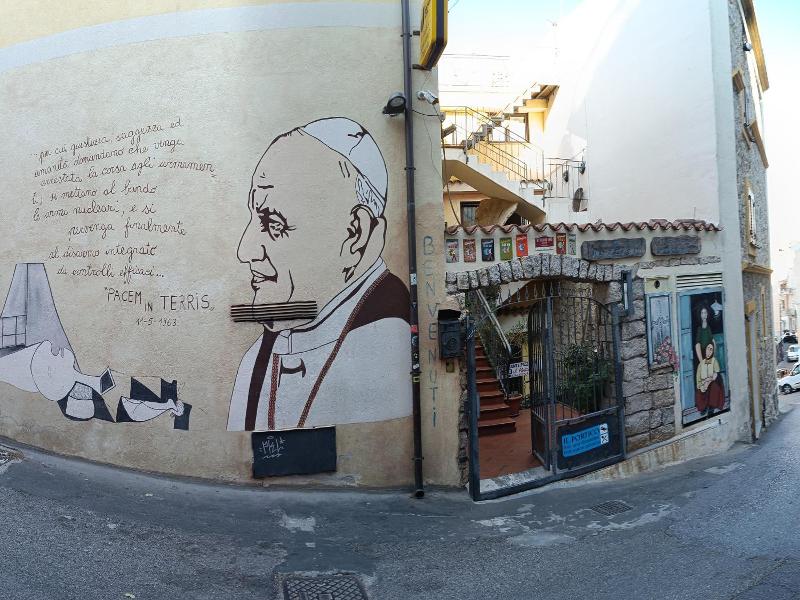 per cui giustizia, saggezza ed
umanità domandano che venga
arrestata la corsa agli armamen
si mettano al bando
le armi nucleari; e si
pervenga finalmente
al disarmo integrato
da controlli efficaci...
"PACEM IN TERRIS"
11-5-1963
BENVENUTI
IL PORTICO